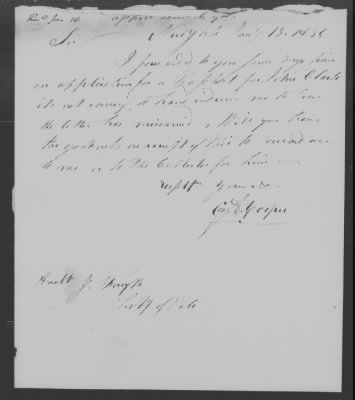 Recd Jan. 16
Sir New York Jany 13. 1838
I forwarded to you some days since
an application for a Passport for John Clark
its not coming to hand induces me to fear
the letter has miscarried, Will you have
the goodness on receipt of this to forward one
to me or to the Collector for him
respy Yours
Cooper
Honbl J. Forsyth
Secty of State